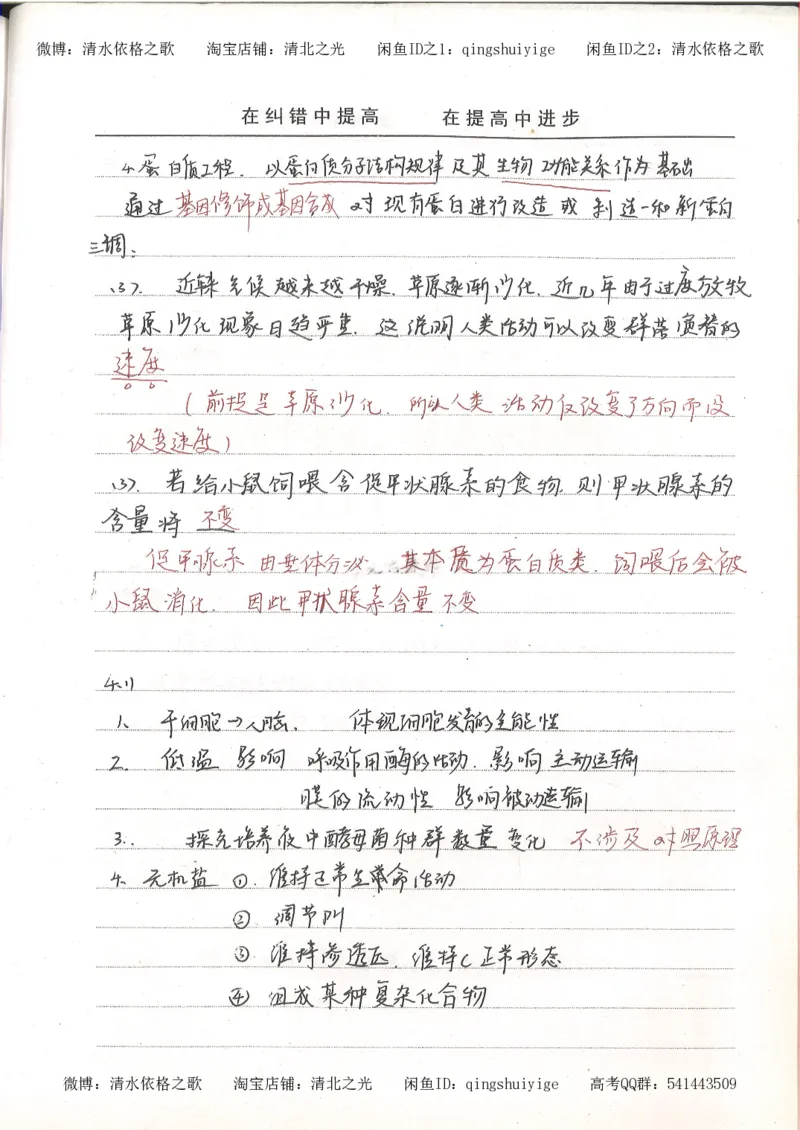 微博：清水依格之歌 淘宝店铺：清北之光 闲鱼ID之1：qingshuiyige 闲鱼ID之2：清水依格之歌
在纠错中提高 在提高中进步
4. 蛋白质工程. 以蛋白质分子结构规律及其生物功能关系作为基础
通过基因修饰或基因合成 对现有蛋白进行改造或制造一种新蛋白
三调:
(3). 近年气候越来越干燥. 草原逐渐沙化. 近几年由于过度放牧
草原沙化现象日趋严重. 这说明人类活动可以改变群落演替的
速度
(前提是草原沙化. 所以人类活动仅改变了方向而没
改变速度)
(3). 若给小鼠饲喂含促甲状腺素的食物. 则甲状腺素的
含量将 不变
促甲腺素 由垂体分泌. 其本质为蛋白质类. 饲喂后会被
小鼠消化. 因此甲状腺素含量不变
4.11
1. 干细胞→人脑. 体现细胞发育的全能性
2. 低温 影响 呼吸作用酶的活动. 影响主动运输
膜的流动性 影响被动运输
3. 探究培养液中酵母菌种群数量变化 不涉及对照原理
4. 无机盐 ①. 维持正常生命活动
② 调节pH
③ 维持渗透压. 维持C正常形态
④ 组成某种复杂化合物
微博：清水依格之歌 淘宝店铺：清北之光 闲鱼ID：qingshuiyige 高考QQ群：541443509